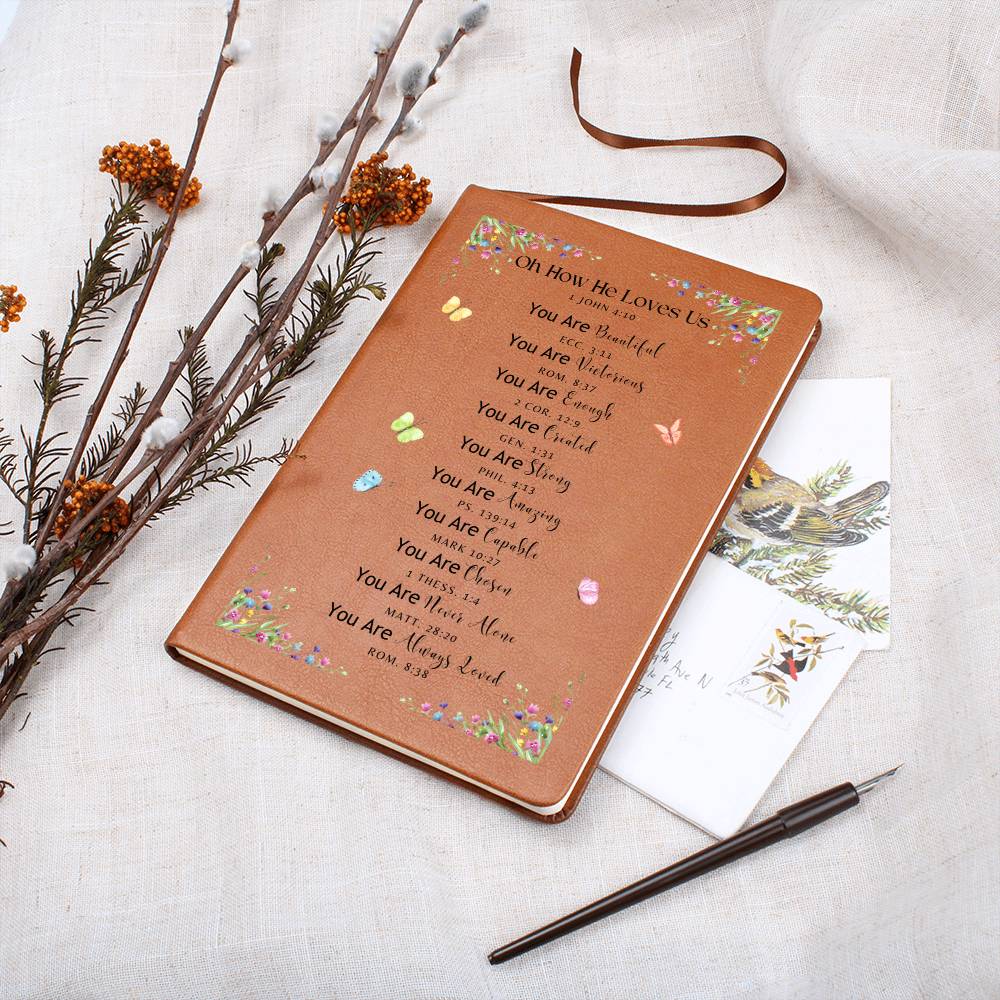 Oh How He Loves Us
1 JOHN 4:10
You Are Beautiful
ECC. 3:11
You Are Victorious
ROM. 8:37
You Are Enough
2 COR. 12:9
You Are Created
GEN. 1:31
You Are Strong
PHIL. 4:13
You Are Amazing
PS. 139:14
You Are Capable
MARK 10:27
You Are Chosen
1 THESS. 1:4
You Are Never Alone
MATT. 28:20
You Are Always Loved
ROM. 8:38
Ave N
FL
77